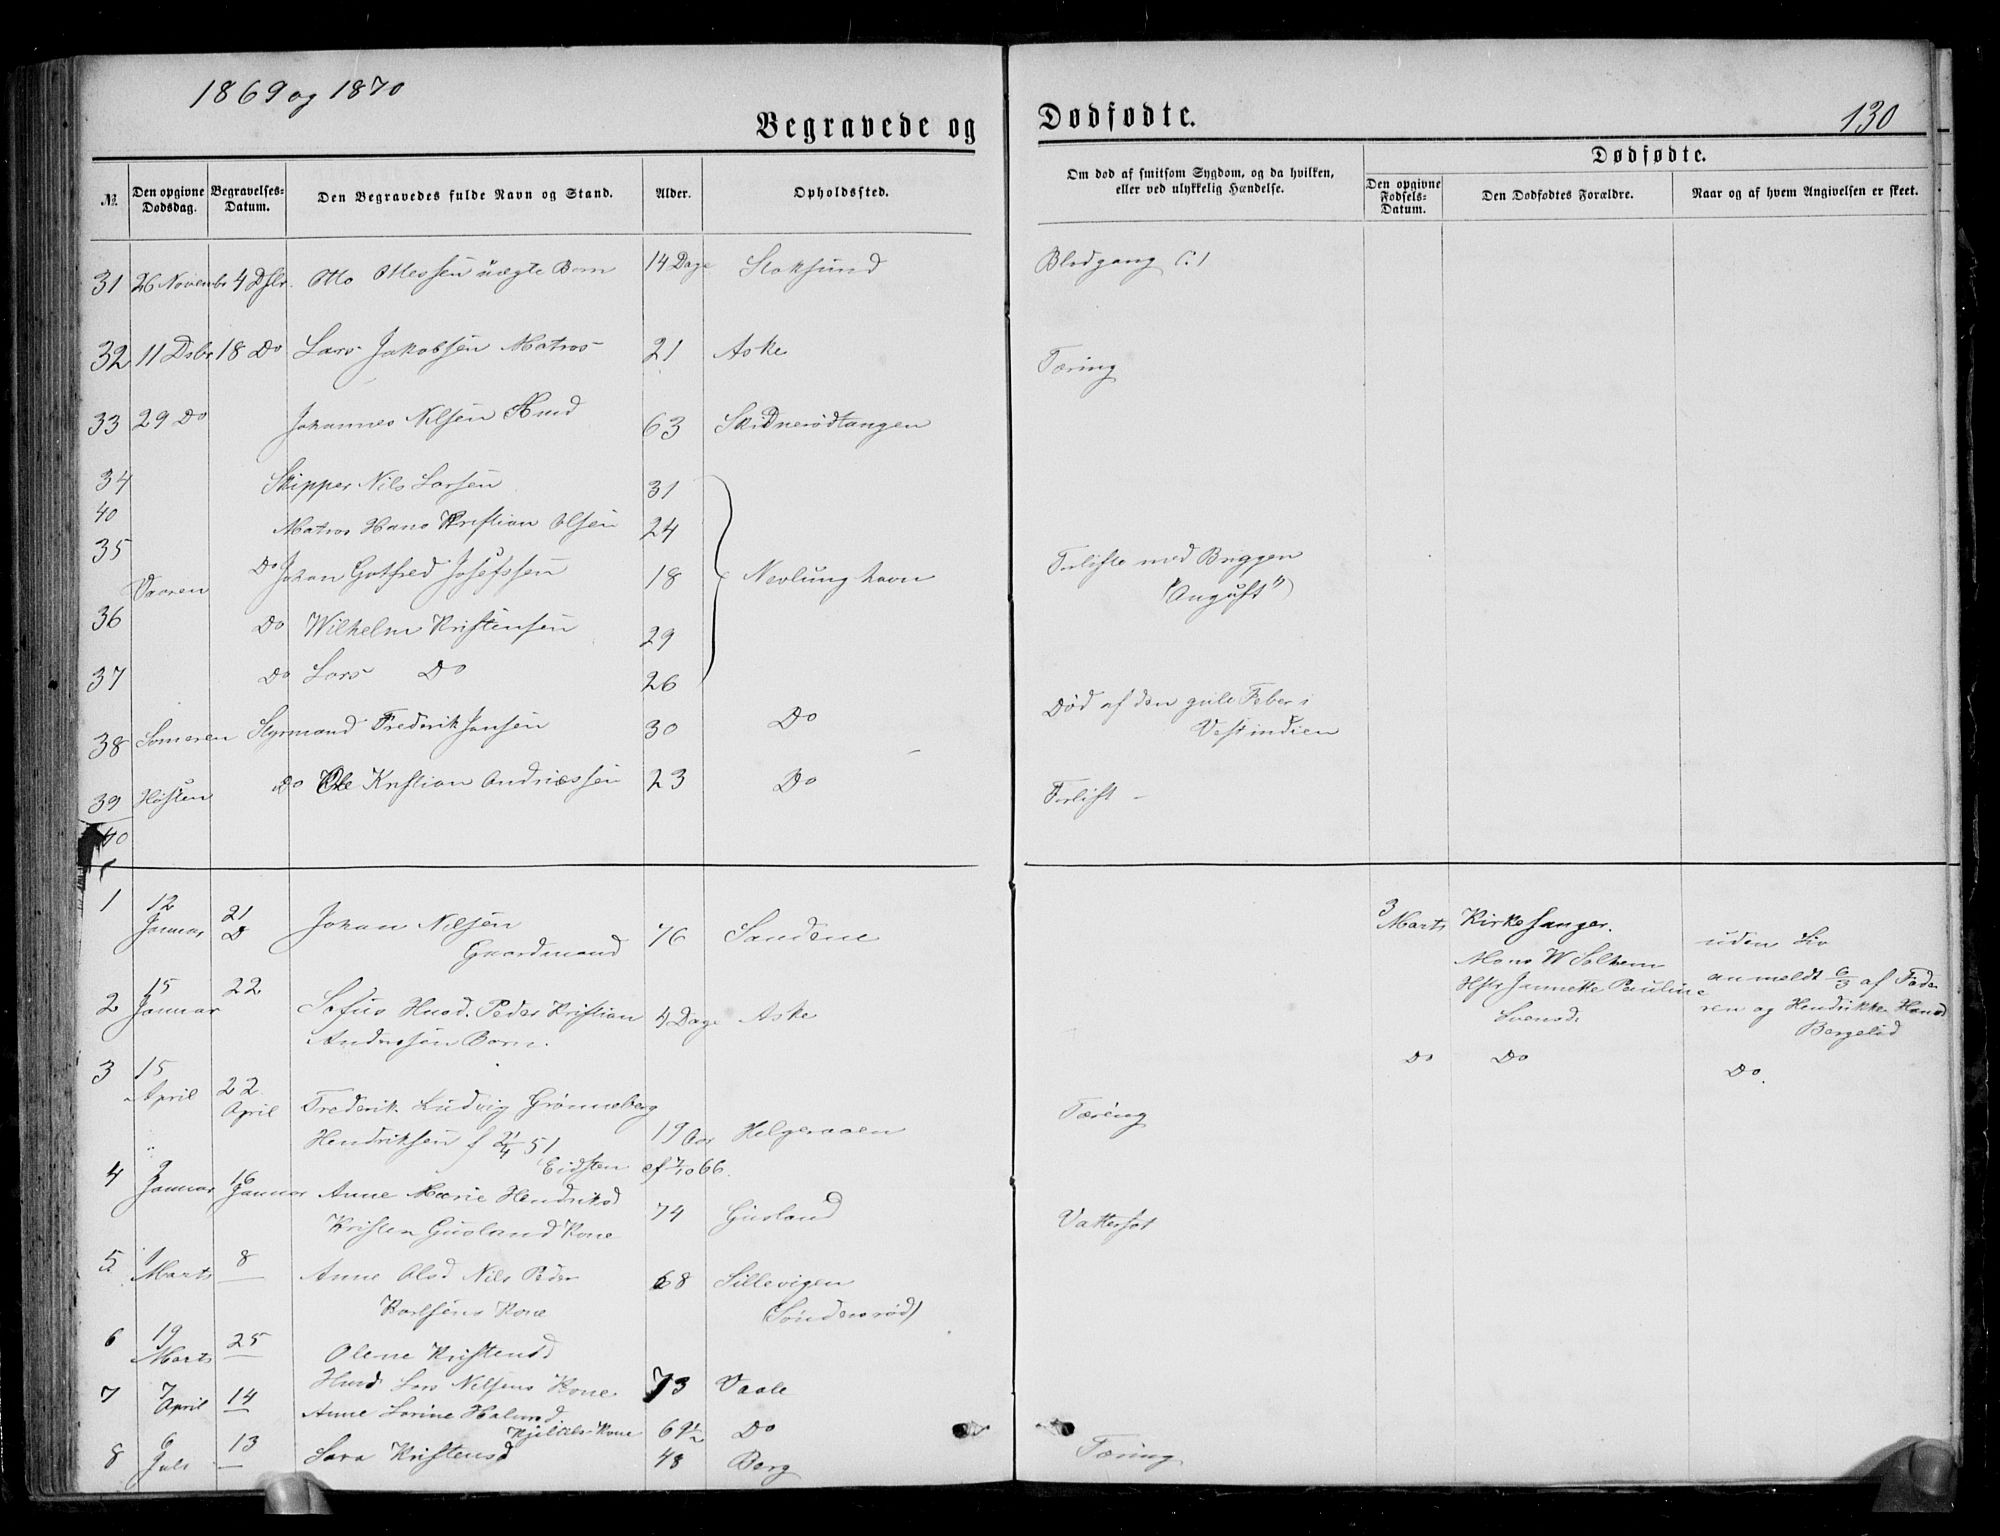 1869 og 1870
130
Begravede og Dødfødte.
№.
Den opgivne Dødsdag.
Begravelses-Datum.
Den Begravedes fulde Navn og Stand.
Alder.
Opholdssted.
Om død af smitsom Sygdom, og da hvilken, eller ved ulykkelig Hændelse.
Dødfødte.
Den opgivne Fødsels-Datum.
Den Dødfødtes Forældre.
Naar og af hvem Angivelsen er skeet.
31 26 Novembr 4 Dsbr. Otto Ottesen uægte Barn 14 Dage Stoksund Blodgang
32 11 Dsbr 18 Do Lars Jakobsen Matros 21 Aske Tæring
33 29 Do Johannes Nilsen Hmd 63 Skidnerødtangen
34 Skipper Nils Larsen 31
40 Matros Hans Kristian Olsen 24
35 Vaaren Do Johan Gotfred Josefssen 18 Nevlunghavn Forliste med Briggen
"August"
36 Do Wilhelm Kristensen 29
37 Do Lars Do 26
38 Someren Styrmand Frederik Jansen 30 Do Død af den gule Feber i
Vestindien
39 Høsten Do Ole Kristian Andriassen 23 Do Forlist -
40
1 12 Januar 21 D Johan Nilsen
Gaardmand 76 Sandene
3 Marts Kirkesanger.
Mons W Solhem
Hstr Jannette Pauline
Svensd.
uden Liv
anmeldt 6/3 af Fade
ren og Hendrikke Hansd
Do Do Do.
2 15 Januar 22 Sofus Husd. Peder Kristian
Andersen Barn. 4 Dage Aske
3 15 April 22 April Frederik Ludvig Grønneberg
Hendriksen f 21/4 51 19 Aar Helgeraaen Tæring
Eidsten
4 9 Januar 16 Januar Anne Marie Hendriksd
Kristen Gusland Kone 74 Gusland Vattersot
5 1 Marts 8 Anne Olsd Nils Peder
Karlsens Kone 68 Sillevigen
(Søndersrød)
6 19 Marts 25 Olene Kristensd
Husd Lars Nilsens Kone 73 Vaale
7 7 April 14 Anne Lorine Halvorsd
Kjeldsens Kone 69½ Do
8 6 Juli 13 Sara Kristensd 48 Berg Tæring